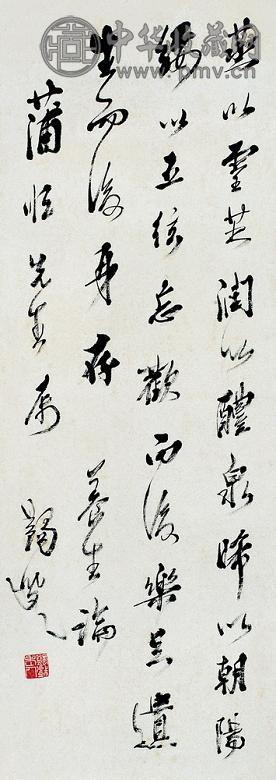 中华收藏网
www.pmv.cn
蒸以靈芝潤以醴泉晞以朝陽
綏以五絃忘歡而後樂足遺
生而後身存 養生論
蒲恒先生屬